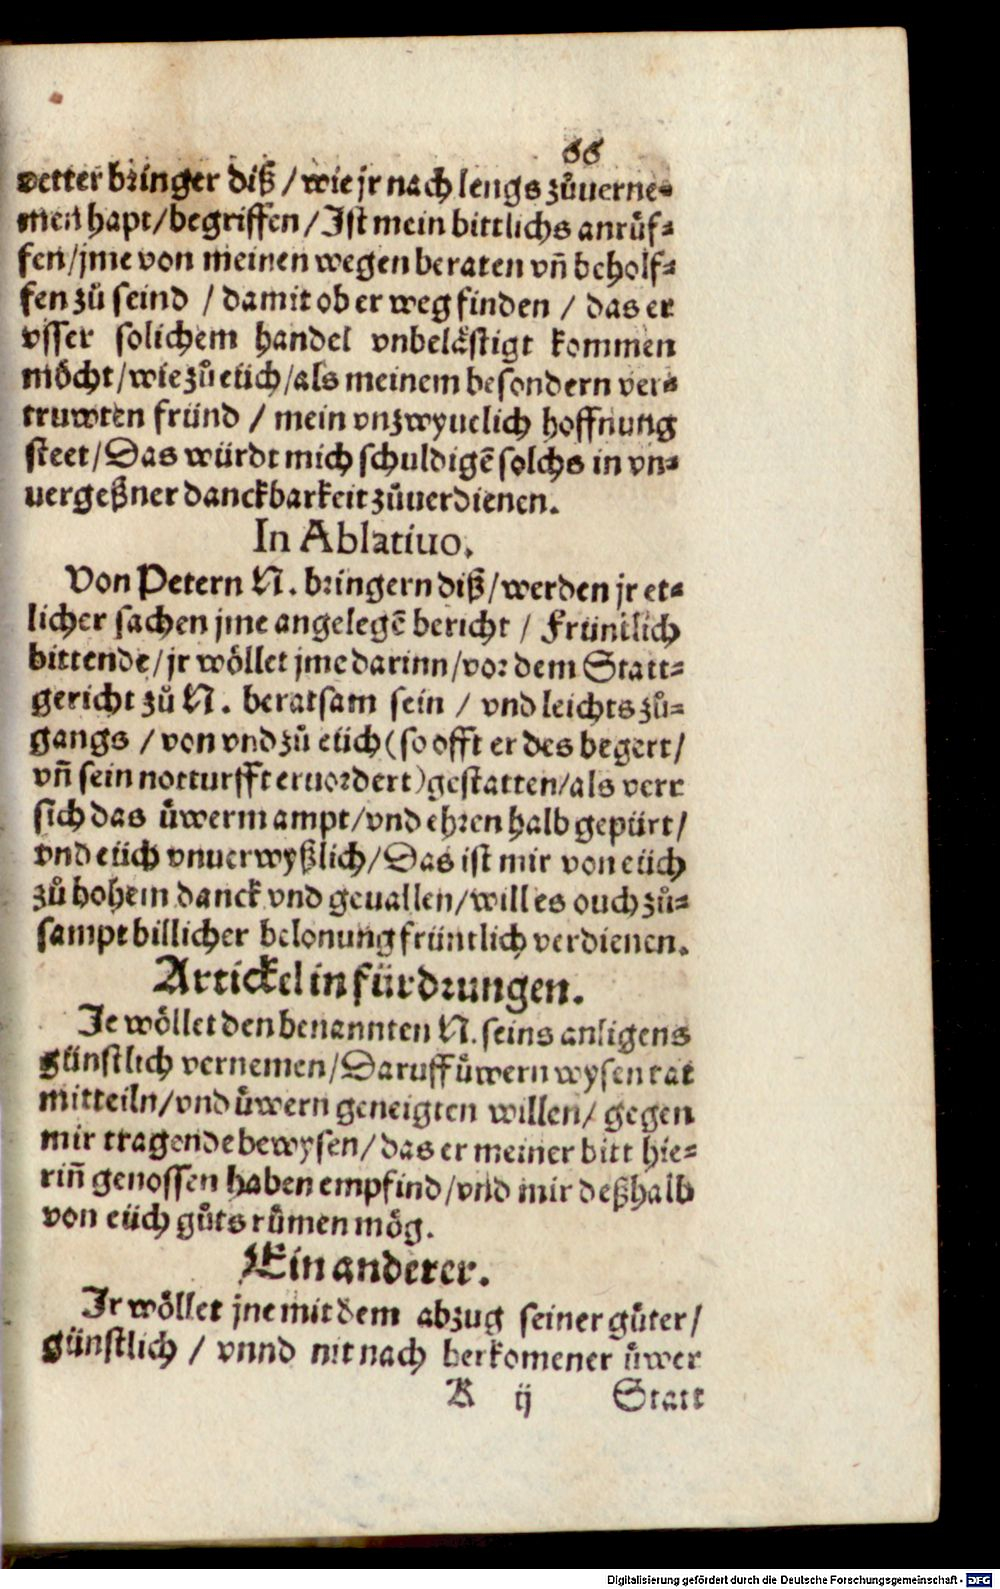 66
vetter bringer diß / wie jr nach lengs zůuerne⸗
men hapt / begriffen / Ist mein bittlichs anrůf⸗
fen / jme von meinen wegen beraten vñ beholf⸗
fen zů seind / damit ob er weg finden / das er
vsser solichem handel vnbelästigt kommen
möcht / wie zů eüch / als meinem besondern ver⸗
truwten fründ / mein vnzwyuelich hoffnung
steet / Das würdt mich schuldigē solchs in vn⸗
uergeßner danckbarkeit zůuerdienen.
In Ablatiuo.
Von Petern N. bringern diß / werden jr et⸗
licher sachen jme angelegē bericht / Früntlich
bittende / jr wöllet jme darinn / vor dem Statt⸗
gericht zů N. beratsam sein / vnd leichts zů⸗
gangs / von vnd zů eüch (so offt er des begert /
vñ sein notturfft eruordert) gestatten / als verr
sich das üwerm ampt / vnd ehren halb gepürt /
vnd eüch vnuerwyßlich / Das ist mir von eüch
zů hohem danck vnd geuallen / will es ouch zů⸗
sampt billicher belonung früntlich verdienen.
Artickel in fürdrungen.
Je wöllet den benannten N. seins anligens
günstlich vernemen / Daruff üwern wysen rat
mitteiln / vnd üwern geneigten willen / gegen
mir tragende bewysen / das er meiner bitt hie⸗
riñ genossen haben empfind / vnd mir deßhalb
von eüch gůts růmen mög.
Ein anderer.
Jr wöllet jne mit dem abzug seiner gůter /
günstlich / vnnd nit nach herkomener üwer
K ij Statt
Digitalisierung gefördert durch die Deutsche Forschungsgemeinschaft - DFG